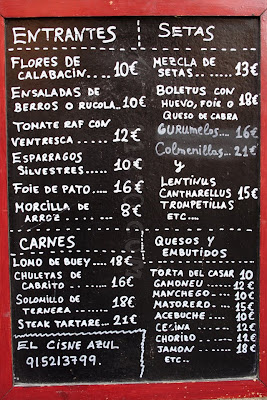 ENTRANTES
FLORES DE
CALABACÍN..... 10€
ENSALADAS DE
BERROS O RUCOLA..10€
TOMATE RAF CON
VENTRESCA.... 12€
ESPARRAGOS
SILVESTRES.... 10€
FOIE DE PATO.... 16€
MORCILLA DE
ARROZ....... 8€
CARNES
LOMO DE BUEY....18€
CHULETAS DE
CABRITO.... 16€
SOLOMILLO DE
TERNERA.... 18€
STEAK TARTARE...21€
EL CISNE AZUL
915213799.
SETAS
MEZCLA DE
SETAS..... 13€
BOLETUS CON
HUEVO, FOIE O 18€
QUESO DE CABRA
GURUMELOS.... 16€
COLMENILLAS...21€
Y
LENTINUS
CANTHARELLUS 15€
TROMPETILLAS
ETC....
QUESOS Y
EMBUTIDOS
TORTA DEL CASAR 10
GAMONEU ...... 12€
MANCHEGO ..... 10€
MAJORERO ..... 8€
ACEBUCHE ..... 10€
CECINA ....... 12€
CHORIBO ...... 12€
JAMON ........ 18€
ETC..